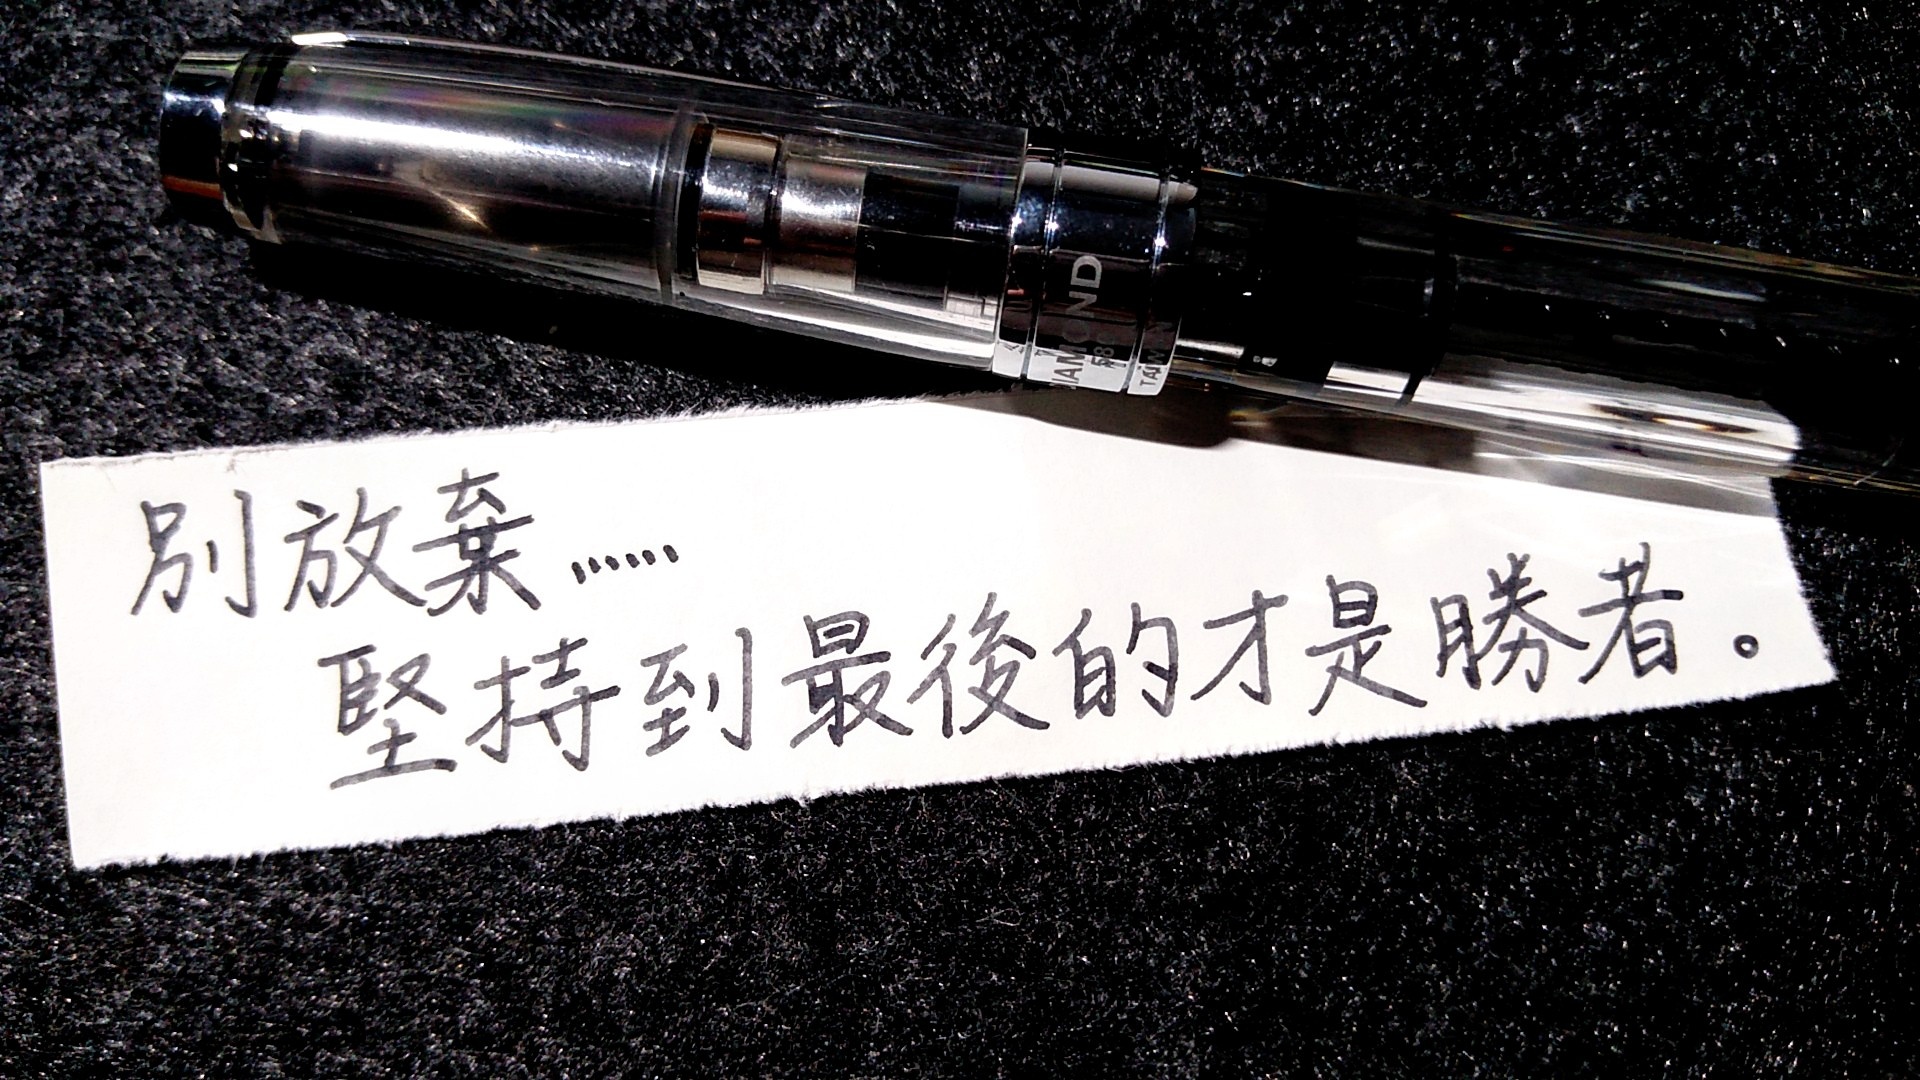 別放棄……
堅持到最後的才是勝者。
DIAMOND
580